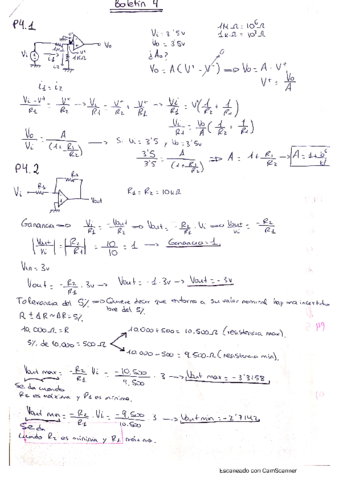 Boletín 4
P4.1
Vi = 3'5v
Vo = 3'5v
¿Ao?
1MΩ = 10⁶Ω
1kΩ = 10³Ω
Vi
Vo
Vo = A(V⁺ - V⁻) ⇒ Vo = A · V⁺
V⁺ = Vo/A
i₁ = i₂
(Vi - V⁺)/R1 = V⁺/R2 → Vi/R1 - V⁺/R1 = V⁺/R2 → Vi/R1 = V(1/R2 + 1/R1)
Vi/R1 = Vo/A (1/R2 + 1/R1)
Vo/Vi = A/(1 + R1/R2) → Si Vi = 3'5, Vo = 3'5v
3'5/3'5 = A/(1 + R1/R2) ⇒ A = 1 + R1/R2
P4.2
Vi
R1
R2
Vout
R1 = R2 = 10kΩ
Ganancia ⇒ Vi/R1 = -Vout/R2 ⇒ Vout = -R2/R1 · Vi ⇒ Vout/Vi = -R2/R1
|Vout/Vi| = |R2/R1| = 10/10 = 1 → Ganancia = 1
Vin = 3v
Vout = -R2/R1 · 3v → Vout = -1 · 3v → Vout = -3v
Tolerancia del 5% ⇒ Quiere decir que entorno a su valor nominal hay una incertidumbre del 5%
R ± ΔR → ΔR = 5%
10.000Ω = R
5% de 10.000 = 500Ω
10.000 + 500 = 10.500Ω (resistencia max)
10.000 - 500 = 9.500Ω (resistencia min)
Vout max = -R2/R1 Vi = -10,500/9,500 · 3 → Vout max = -3'3158
Se da cuando R2 es máxima y R1 es mínima.
Vout min = -R2/R1 · Vi = -9,500/10,500 · 3 → Vout min = -2'7143
Se da cuando R2 es mínima y R1 máxima.
Escaneado con CamScanner